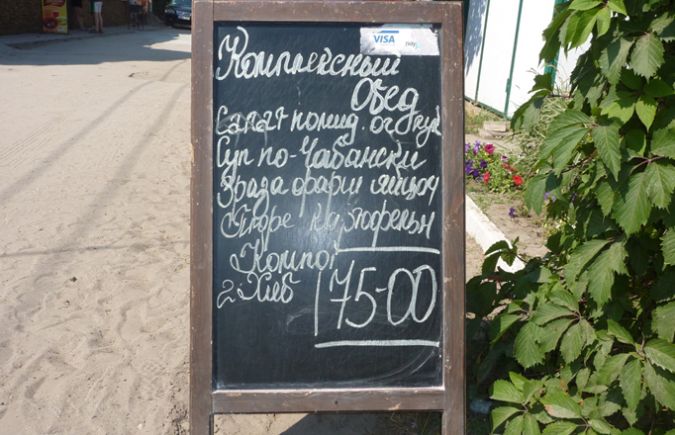 VISA
Комплексный
Обед
Салат помид. огур
Суп по-Чабански
Зраза фарш яйцом
Пюре картофельн
Компот
2. Хлеб 175-00